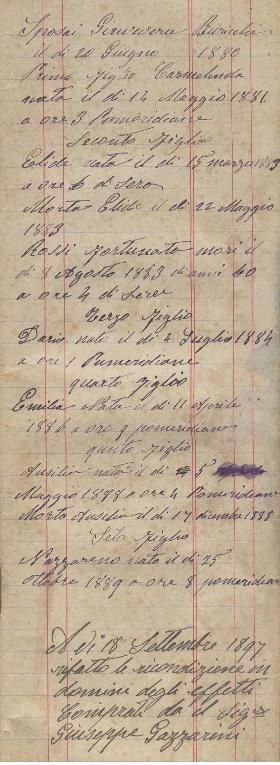 Sposai Ginevera Burichi
il di 20 Giugno 1880
Primo figlio Carmelinda
nata il di 14 Maggio 1881
a ore 3 Pomeridiane
Seconto figlio
Elide nata il di 15 marzo 1883
a ore 6 di Sera
Morta Elide il di 22 Maggio
1883
Rossi Fortunato mori il
di 8 Agosto 1883 di anni 60
a ore 4 di Sera
Terzo figlio
Dario nato il di 4 Luglio 1884
a ore 1 Pomeridiane
quarto figlio
Emilia Nata il di 11 Aprile
1886 a ore 9 pomeridiane
quinto figlio
Ausilia nata il di 5
Maggio 1888 a ore 4 Pomeridiane
Morta Ausilia il di 17 dicembre 1888
Sesto figlio
Nazzareno nato il di 25
ottobre 1889 a ore 8 pomeridiane
A di 18 Settembre 1897
rifatto le
domini degli effetti
Comprati da il Sigr
Giuseppe Gazzarini